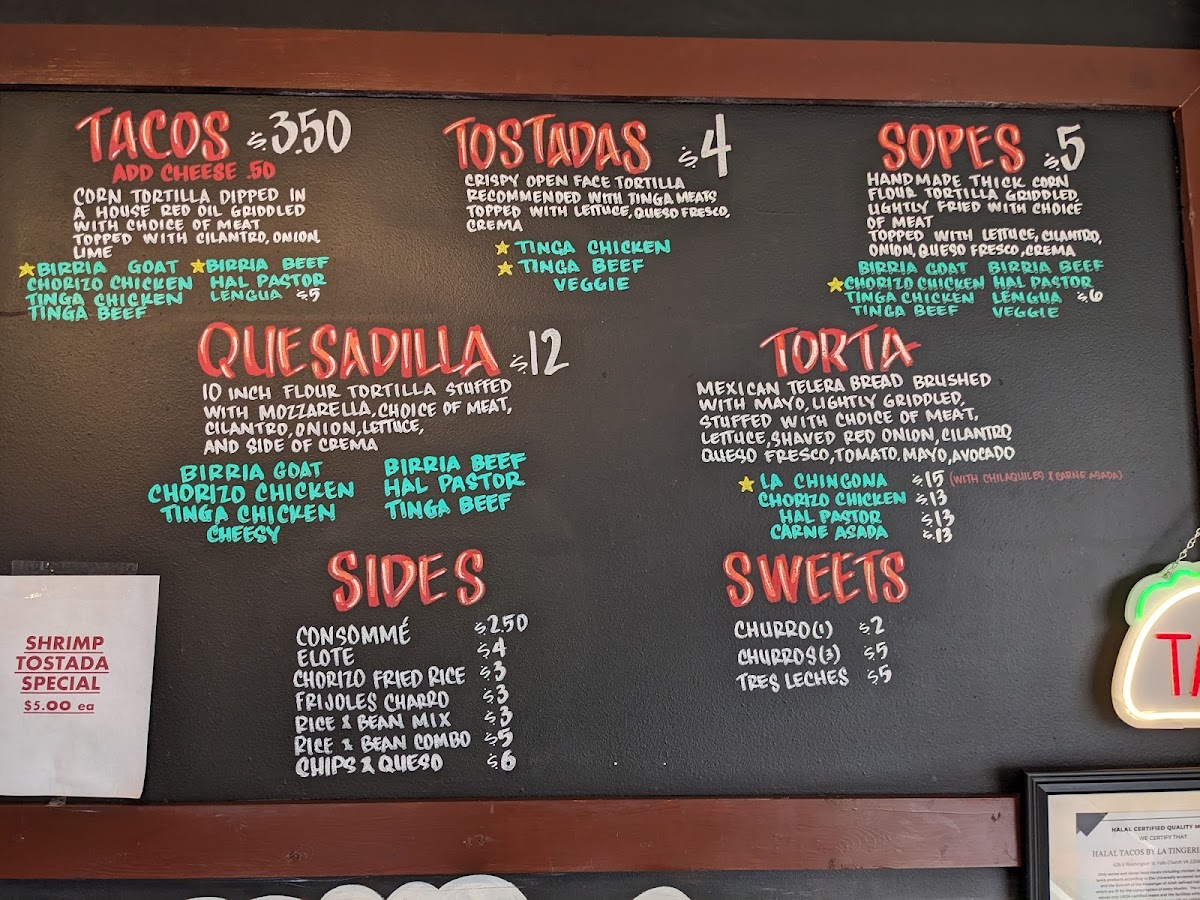 TACOS $3.50
ADD CHEESE .50
CORN TORTILLA DIPPED IN
A HOUSE RED OIL GRIDDLED
WITH CHOICE OF MEAT
TOPPED WITH CILANTRO, ONION,
LIME
BIRRIA GOAT BIRRIA BEEF
CHORIZO CHICKEN HAL PASTOR
TINGA CHICKEN LENGUA $5
TINGA BEEF
TOSTADAS $4
CRISPY OPEN FACE TORTILLA
RECOMMENDED WITH TINGA MEATS
TOPPED WITH LETTUCE, QUESO FRESCO,
CREMA
TINGA CHICKEN
TINGA BEEF
VEGGIE
SOPES $5
HANDMADE THICK CORN
FLOUR TORTILLA GRIDDLED,
LIGHTLY FRIED WITH CHOICE
OF MEAT
TOPPED WITH LETTUCE, CILANTRO,
ONION, QUESO FRESCO, CREMA
BIRRIA GOAT BIRRIA BEEF
CHORIZO CHICKEN HAL PASTOR
TINGA CHICKEN LENGUA $6
TINGA BEEF VEGGIE
QUESADILLA $12
10 INCH FLOUR TORTILLA STUFFED
WITH MOZZARELLA, CHOICE OF MEAT,
CILANTRO, ONION, LETTUCE,
AND SIDE OF CREMA
BIRRIA GOAT BIRRIA BEEF
CHORIZO CHICKEN HAL PASTOR
TINGA CHICKEN TINGA BEEF
CHEESY
TORTA
MEXICAN TELERA BREAD BRUSHED
WITH MAYO, LIGHTLY GRIDDLED,
STUFFED WITH CHOICE OF MEAT,
LETTUCE, SHAVED RED ONION, CILANTRO
QUESO FRESCO, TOMATO, MAYO, AVOCADO
LA CHINGONA $15 (WITH CHILAQUILES & CARNE ASADA)
CHORIZO CHICKEN $13
HAL PASTOR $13
CARNE ASADA $13
SIDES
CONSOMMÉ $2.50
ELOTE $4
CHORIZO FRIED RICE $3
FRIJOLES CHARRO $3
RICE & BEAN MIX $3
RICE & BEAN COMBO $5
CHIPS & QUESO $6
SWEETS
CHURRO(1) $2
CHURROS(3) $5
TRES LECHES $5
SHRIMP
TOSTADA
SPECIAL
$5.00 ea
TA
HALAL CERTIFIED QUALITY M
WE CERTIFY THAT
HALAL TACOS BY LA TINGERI